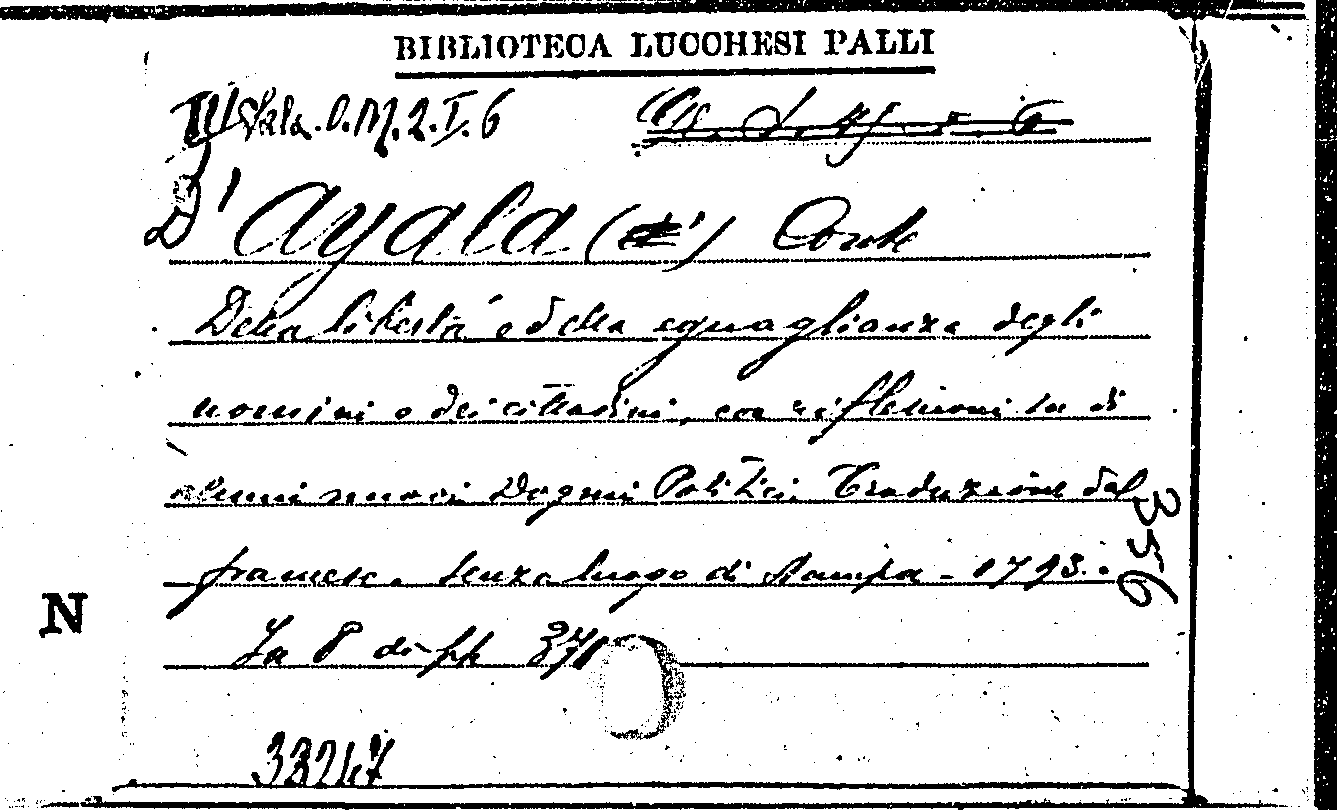 BIBLIOTECA LUCCHESI PALLI
IV Sala. O.M. 2. I. 6
D' Ayala (d') Conte
Della libertà e della eguaglianza degli
uomini e dei cittadini, con riflessioni su di
alcuni nuovi Dogmi Politici. Traduzione dal
francese. Senza luogo di stampa - 1793.
356
N
In 8° di pp
38247